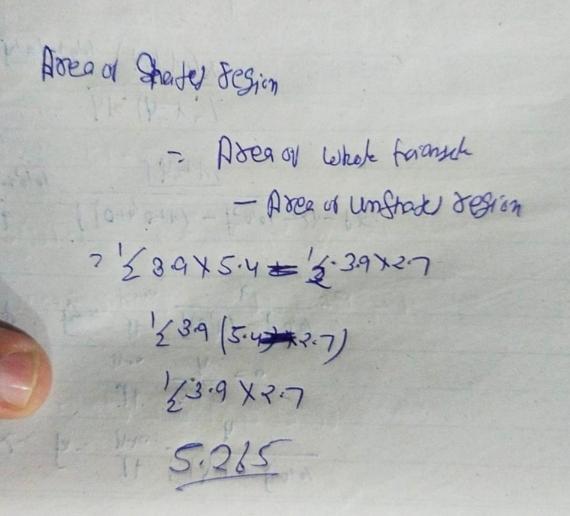 Area of Shaded region
= Area of whole triangle
- Area of Unshaded region
= 1/2 3.9 x 5.4 - 1/2 . 3.9 x 2.7
1/2 3.9 (5.4 - 2.7)
1/2 3.9 x 2.7
5.265